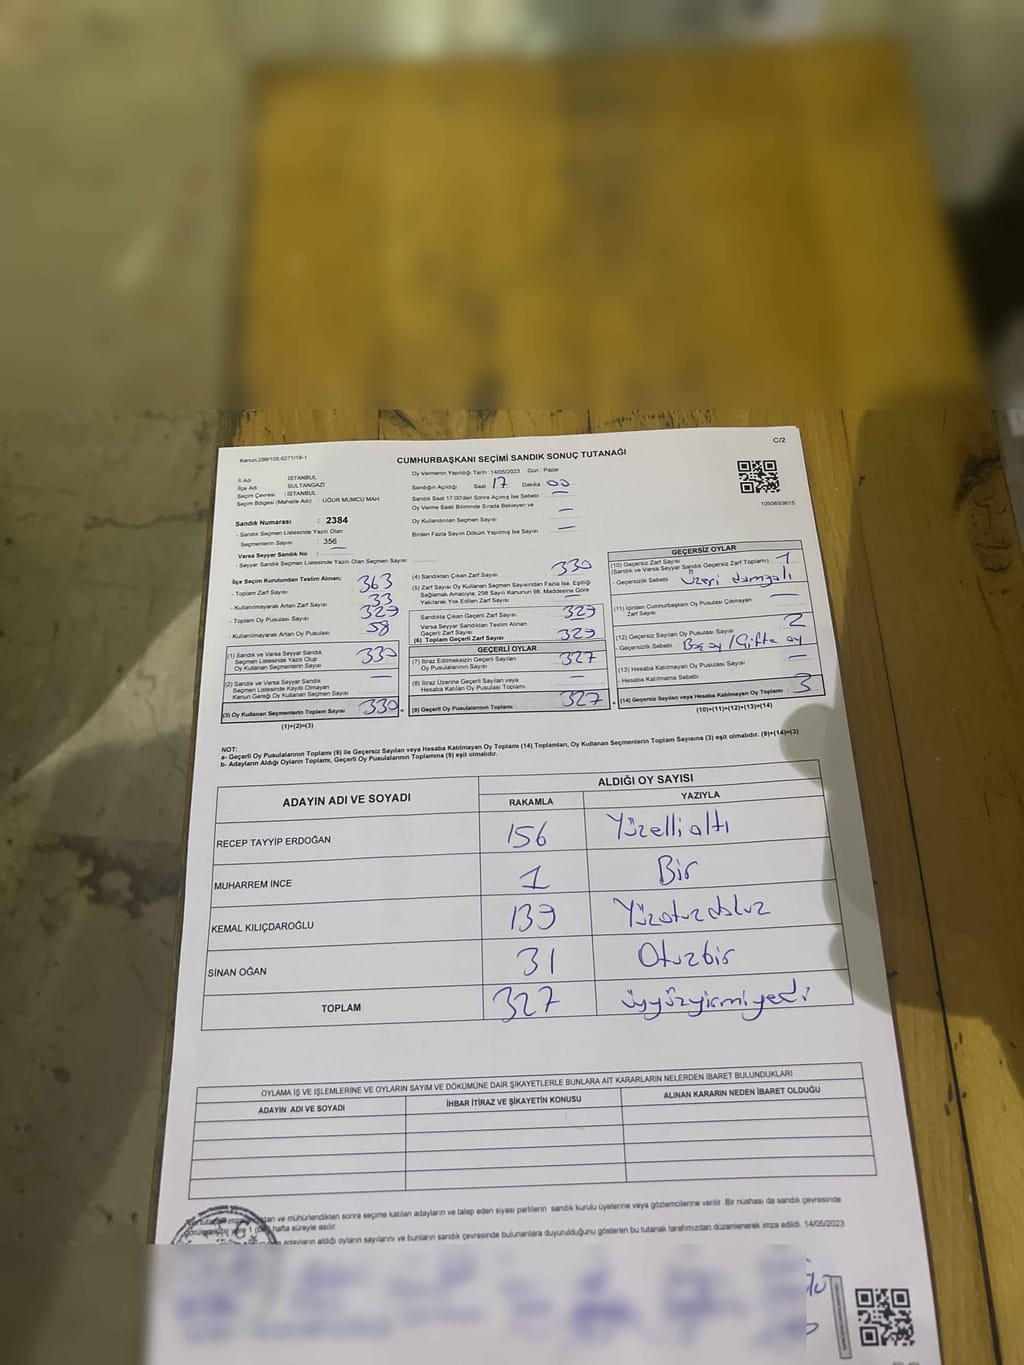 Kanun:298/105,6271/18-1
C/2
CUMHURBAŞKANI SEÇİMİ SANDIK SONUÇ TUTANAĞI
İl Adı : İSTANBUL
İlçe Adı : SULTANGAZİ
Seçim Çevresi : İSTANBUL
Seçim Bölgesi (Mahalle Adı) : UĞUR MUMCU MAH.
Sandık Numarası : 2384
- Sandık Seçmen Listesinde Yazılı Olan
Seçmenlerin Sayısı : 356
Varsa Seyyar Sandık No : —
- Seyyar Sandık Seçmen Listesinde Yazılı Olan Seçmen Sayısı:
Oy Vermenin Yapıldığı Tarih : 14/05/2023 Gün : Pazar
Sandığın Açıldığı Saat 17 Dakika 00
Sandık Saat 17.00'den Sonra Açılmış İse Sebebi —
Oy Verme Saati Bitiminde Sırada Bekleyen ve
Oy Kullandırılan Seçmen Sayısı —
Birden Fazla Sayım Döküm Yapılmış İse Sayısı —
1093693615
İlçe Seçim Kurulundan Teslim Alınan;
- Toplam Zarf Sayısı 363
- Kullanılmayarak Artan Zarf Sayısı 33
- Toplam Oy Pusulası Sayısı
- Kullanılmayarak Artan Oy Pusulası 58
(1) Sandık ve Varsa Seyyar Sandık
Seçmen Listesinde Yazılı Olup
Oy Kullanan Seçmenlerin Sayısı 330
(2) Sandık ve Varsa Seyyar Sandık
Seçmen Listesinde Kayıtlı Olmayan
Kanun Gereği Oy Kullanan Seçmen Sayısı —
(3) Oy Kullanan Seçmenlerin Toplam Sayısı 330
(1)+(2)=(3)
(4) Sandıktan Çıkan Zarf Sayısı 330
(5) Zarf Sayısı Oy Kullanan Seçmen Sayısından Fazla İse, Eşitliği
Sağlamak Amacıyla, 298 Sayılı Kanunun 98. Maddesine Göre
Yakılarak Yok Edilen Zarf Sayısı —
Sandıkta Çıkan Geçerli Zarf Sayısı 329
Varsa Seyyar Sandıktan Teslim Alınan
Geçerli Zarf Sayısı —
(6) Toplam Geçerli Zarf Sayısı 329
GEÇERLİ OYLAR
(7) İtiraz Edilmeksizin Geçerli Sayılan
Oy Pusulalarının Sayısı 327
(8) İtiraz Üzerine Geçerli Sayılan veya
Hesaba Katılan Oy Pusulası Toplamı —
(9) Geçerli Oy Pusulalarının Toplamı 327
GEÇERSİZ OYLAR
(10) Geçersiz Zarf Sayısı
(Sandık ve Varsa Seyyar Sandık Geçersiz Zarf Toplamı) 1
- Geçersizlik Sebebi Üzeri damgalı
(11) İçinden Cumhurbaşkanı Oy Pusulası Çıkmayan
Zarf Sayısı —
(12) Geçersiz Sayılan Oy Pusulası Sayısı 2
- Geçersizlik Sebebi Boş oy / Çifte oy
(13) Hesaba Katılmayan Oy Pusulası Sayısı —
- Hesaba Katılmama Sebebi
(14) Geçersiz Sayılan veya Hesaba Katılmayan Oy Toplamı 3
(10)+(11)+(12)+(13)=(14)
NOT:
a- Geçerli Oy Pusulalarının Toplamı (9) ile Geçersiz Sayılan veya Hesaba Katılmayan Oy Toplamı (14) Toplamları, Oy Kullanan Seçmenlerin Toplam Sayısına (3) eşit olmalıdır. (9)+(14)=(3)
b- Adayların Aldığı Oyların Toplamı, Geçerli Oy Pusulalarının Toplamına (9) eşit olmalıdır.
ADAYIN ADI VE SOYADI
ALDIĞI OY SAYISI
RAKAMLA YAZIYLA
RECEP TAYYİP ERDOĞAN 156 Yüzelli altı
MUHARREM İNCE 1 Bir
KEMAL KILIÇDAROĞLU 139 Yüzotuzdokuz
SİNAN OĞAN 31 Otuzbir
TOPLAM 327 üçyüzyirmiyedi
OYLAMA İŞ VE İŞLEMLERİNE VE OYLARIN SAYIM VE DÖKÜMÜNE DAİR ŞİKAYETLERLE BUNLARA AİT KARARLARIN NELERDEN İBARET BULUNDUKLARI
ADAYIN ADI VE SOYADI İHBAR İTİRAZ VE ŞİKAYETİN KONUSU ALINAN KARARIN NEDEN İBARET OLDUĞU
ve mühürlendikten sonra seçime katılan adayların ve talep eden siyasi partilerin sandık kurulu üyelerine veya gözlemcilerine verilir. Bir nüshası da sandık çevresinde
hafta süreyle asılır.
adayların aldığı oyların sayılarını ve bunların sandık çevresinde bulunanlara duyurulduğunu gösteren bu tutanak tarafımızdan düzenlenerek imza edildi. 14/05/2023